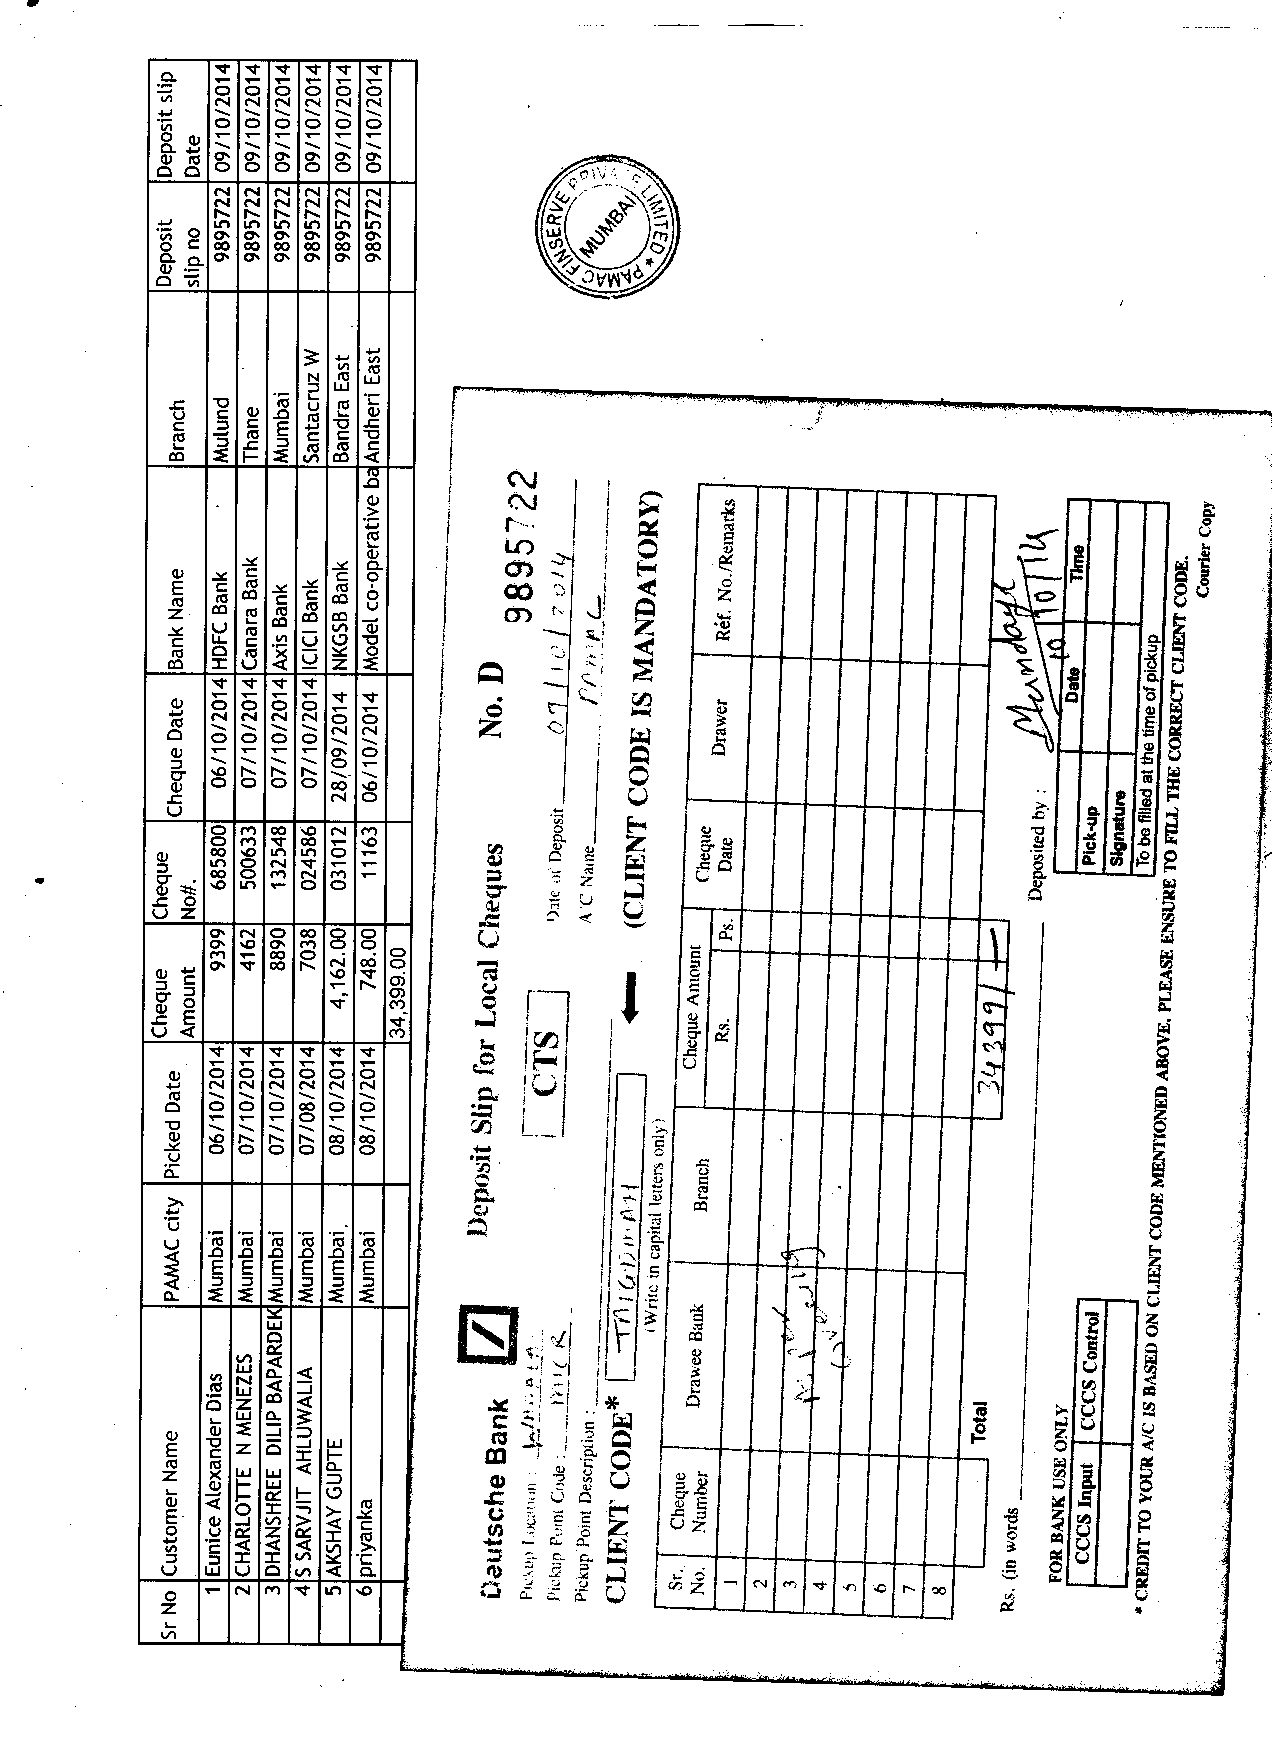 Sr No Customer Name PAMAC city Picked Date Cheque Amount Cheque No#. Cheque Date Bank Name Branch Deposit slip no Deposit slip Date
1 Eunice Alexander Dias Mumbai 06/10/2014 9399 685800 06/10/2014 HDFC Bank Mulund 9895722 09/10/2014
2 CHARLOTTE N MENEZES Mumbai 07/10/2014 4162 500633 07/10/2014 Canara Bank Thane 9895722 09/10/2014
3 DHANSHREE DILIP BAPARDEK Mumbai 07/10/2014 8890 132548 07/10/2014 Axis Bank Mumbai 9895722 09/10/2014
4 S SARVJIT AHLUWALIA Mumbai 07/08/2014 7038 024586 07/10/2014 ICICI Bank Santacruz W 9895722 09/10/2014
5 AKSHAY GUPTE Mumbai. 08/10/2014 4,162.00 031012 28/09/2014 NKGSB Bank Bandra East 9895722 09/10/2014
6 priyanka Mumbai 08/10/2014 748.00 11163 06/10/2014 Model co-operative ba Andheri East 9895722 09/10/2014
34,399.00
PAMAC FINSERVE PRIVATE LIMITED ★
MUMBAI
Deutsche Bank Deposit Slip for Local Cheques No. D 9895722
Pickup Location : CTS Date of Deposit 09/10/2014
Pickup Point Code : MICR A/C Name PAMAC
Pickup Point Description :
CLIENT CODE* (CLIENT CODE IS MANDATORY)
(Write in capital letters only)
Sr. No. Cheque Number Drawee Bank Branch Cheque Amount Rs. Ps. Cheque Date Drawer Ref. No./Remarks
1
2
3
4
5
6
7
8
Total 34399/-
Rs. (in words Deposited by :
10/10/14
FOR BANK USE ONLY
CCCS Input CCCS Control
Date Time
Pick-up
Signature
To be filled at the time of pickup
* CREDIT TO YOUR A/C IS BASED ON CLIENT CODE MENTIONED ABOVE, PLEASE ENSURE TO FILL THE CORRECT CLIENT CODE.
Courier Copy